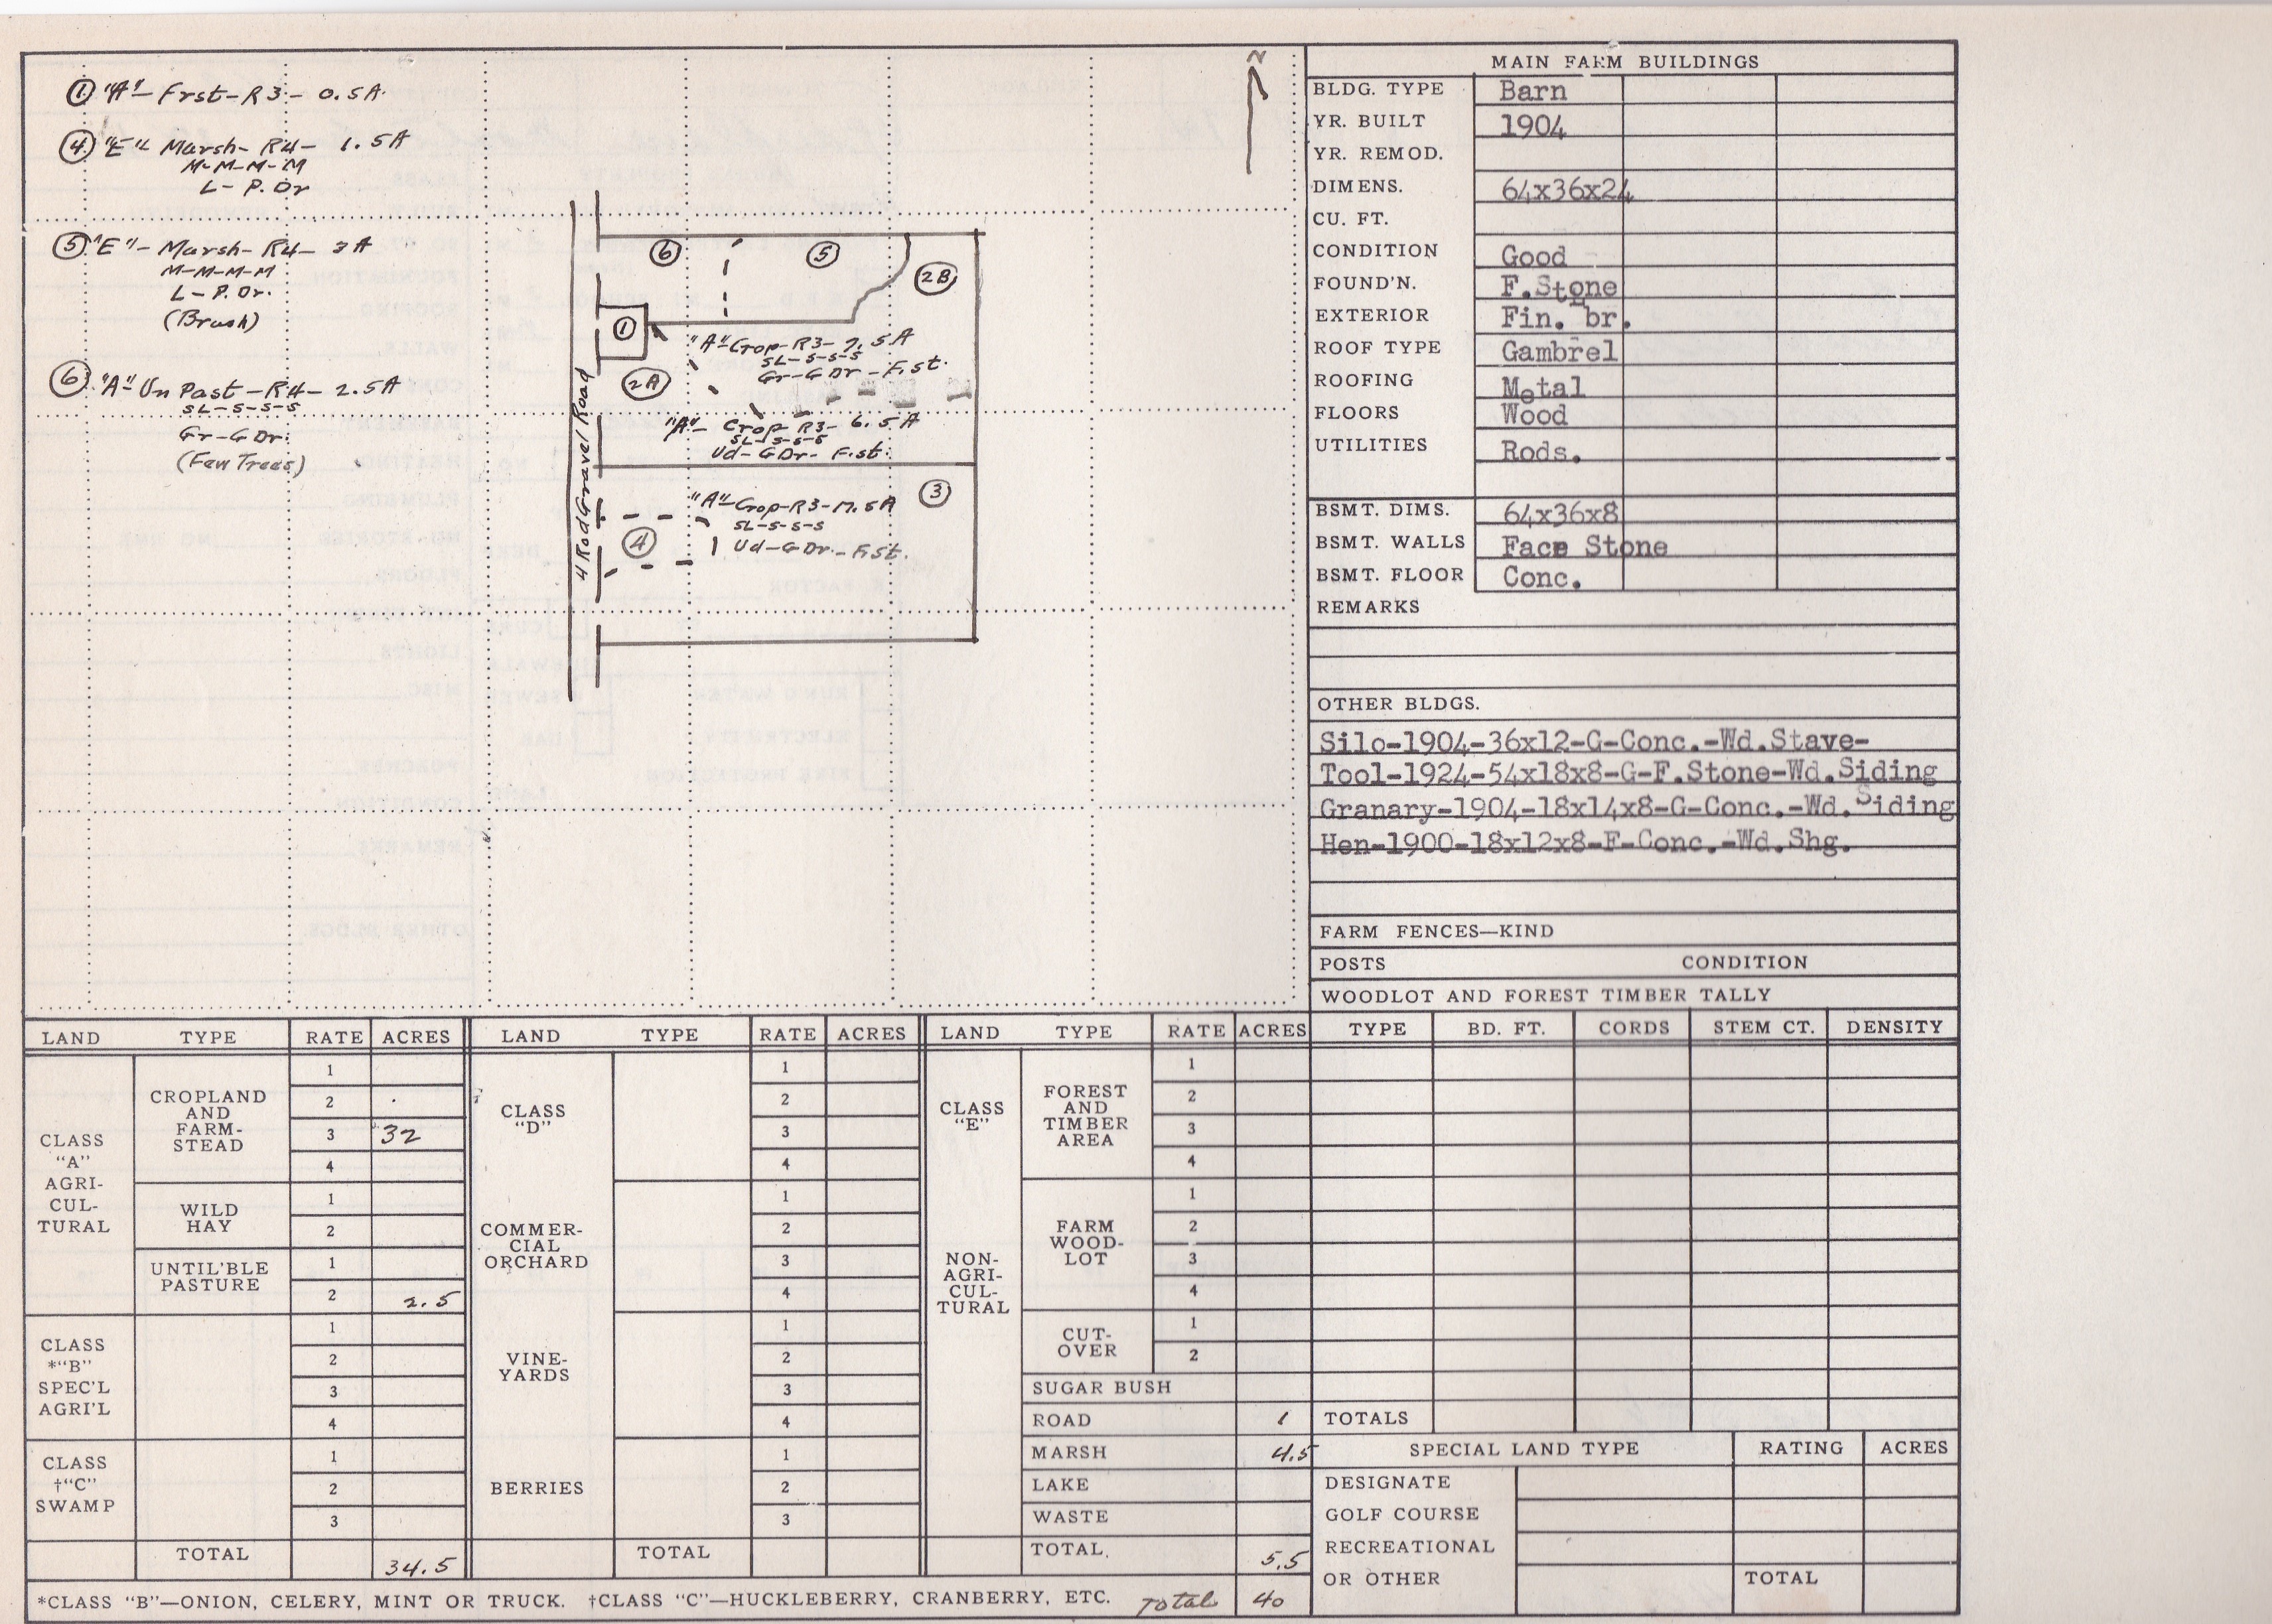 ① "A"-Frst-R3- 0.5A
④ "E" Marsh-R4- 1.5A
M-M-M-M
L-P.Dr
⑤ "E"-Marsh-R4- 3A
M-M-M-M
L-P.Dr.
(Brush)
⑥ "A" Un Past-R4-2.5A
SL-S-S-S
Gr-G Dr.
(Few Trees)
N
⑥
⑤
2B
①
"A" Crop-R3-7.5A
SL-S-S-S
Gr-G Dr-F.st.
2A
"A"- Crop R3- 6.5A
SL-S-S-S
Ud-G Dr- F.st.
4 Rod Gravel Road
③
"A"-Crop-R3-17.5A
SL-S-S-S
Ud-G Dr-F.st.
④
MAIN FARM BUILDINGS
BLDG. TYPE Barn
YR. BUILT 1904
YR. REMOD.
DIMENS. 64x36x24
CU. FT.
CONDITION Good
FOUND'N. F.Stone
EXTERIOR Fin. br.
ROOF TYPE Gambrel
ROOFING Metal
FLOORS Wood
UTILITIES Rods.
BSMT. DIMS. 64x36x8
BSMT. WALLS Face Stone
BSMT. FLOOR Conc.
REMARKS
OTHER BLDGS.
Silo-1904-36x12-G-Conc.-Wd.Stave-
Tool-1924-54x18x8-G-F.Stone-Wd.Siding
Granary-1904-18x14x8-G-Conc.-Wd.Siding
Hen-1900-18x12x8-F-Conc.-Wd.Shg.
FARM FENCES—KIND
POSTS CONDITION
WOODLOT AND FOREST TIMBER TALLY
TYPE BD. FT. CORDS STEM CT. DENSITY
TOTALS
SPECIAL LAND TYPE RATING ACRES
DESIGNATE
GOLF COURSE
RECREATIONAL
OR OTHER TOTAL
LAND TYPE RATE ACRES
CLASS
"A"
AGRI-
CUL-
TURAL
CROPLAND
AND
FARM-
STEAD
1
2
3 32
4
WILD
HAY
1
2
UNTIL'BLE
PASTURE
1
2 2.5
CLASS
*"B"
SPEC'L
AGRI'L
1
2
3
4
CLASS
†"C"
SWAMP
1
2
3
TOTAL 34.5
LAND TYPE RATE ACRES
CLASS
"D"
1
2
3
4
COMMER-
CIAL
ORCHARD
1
2
3
4
VINE-
YARDS
1
2
3
4
BERRIES
1
2
3
TOTAL
LAND TYPE RATE ACRES
CLASS
"E"
NON-
AGRI-
CUL-
TURAL
FOREST
AND
TIMBER
AREA
1
2
3
4
FARM
WOOD-
LOT
1
2
3
4
CUT-
OVER
1
2
SUGAR BUSH
ROAD 1
MARSH 4.5
LAKE
WASTE
TOTAL. 5.5
*CLASS "B"—ONION, CELERY, MINT OR TRUCK. †CLASS "C"—HUCKLEBERRY, CRANBERRY, ETC. Total 40